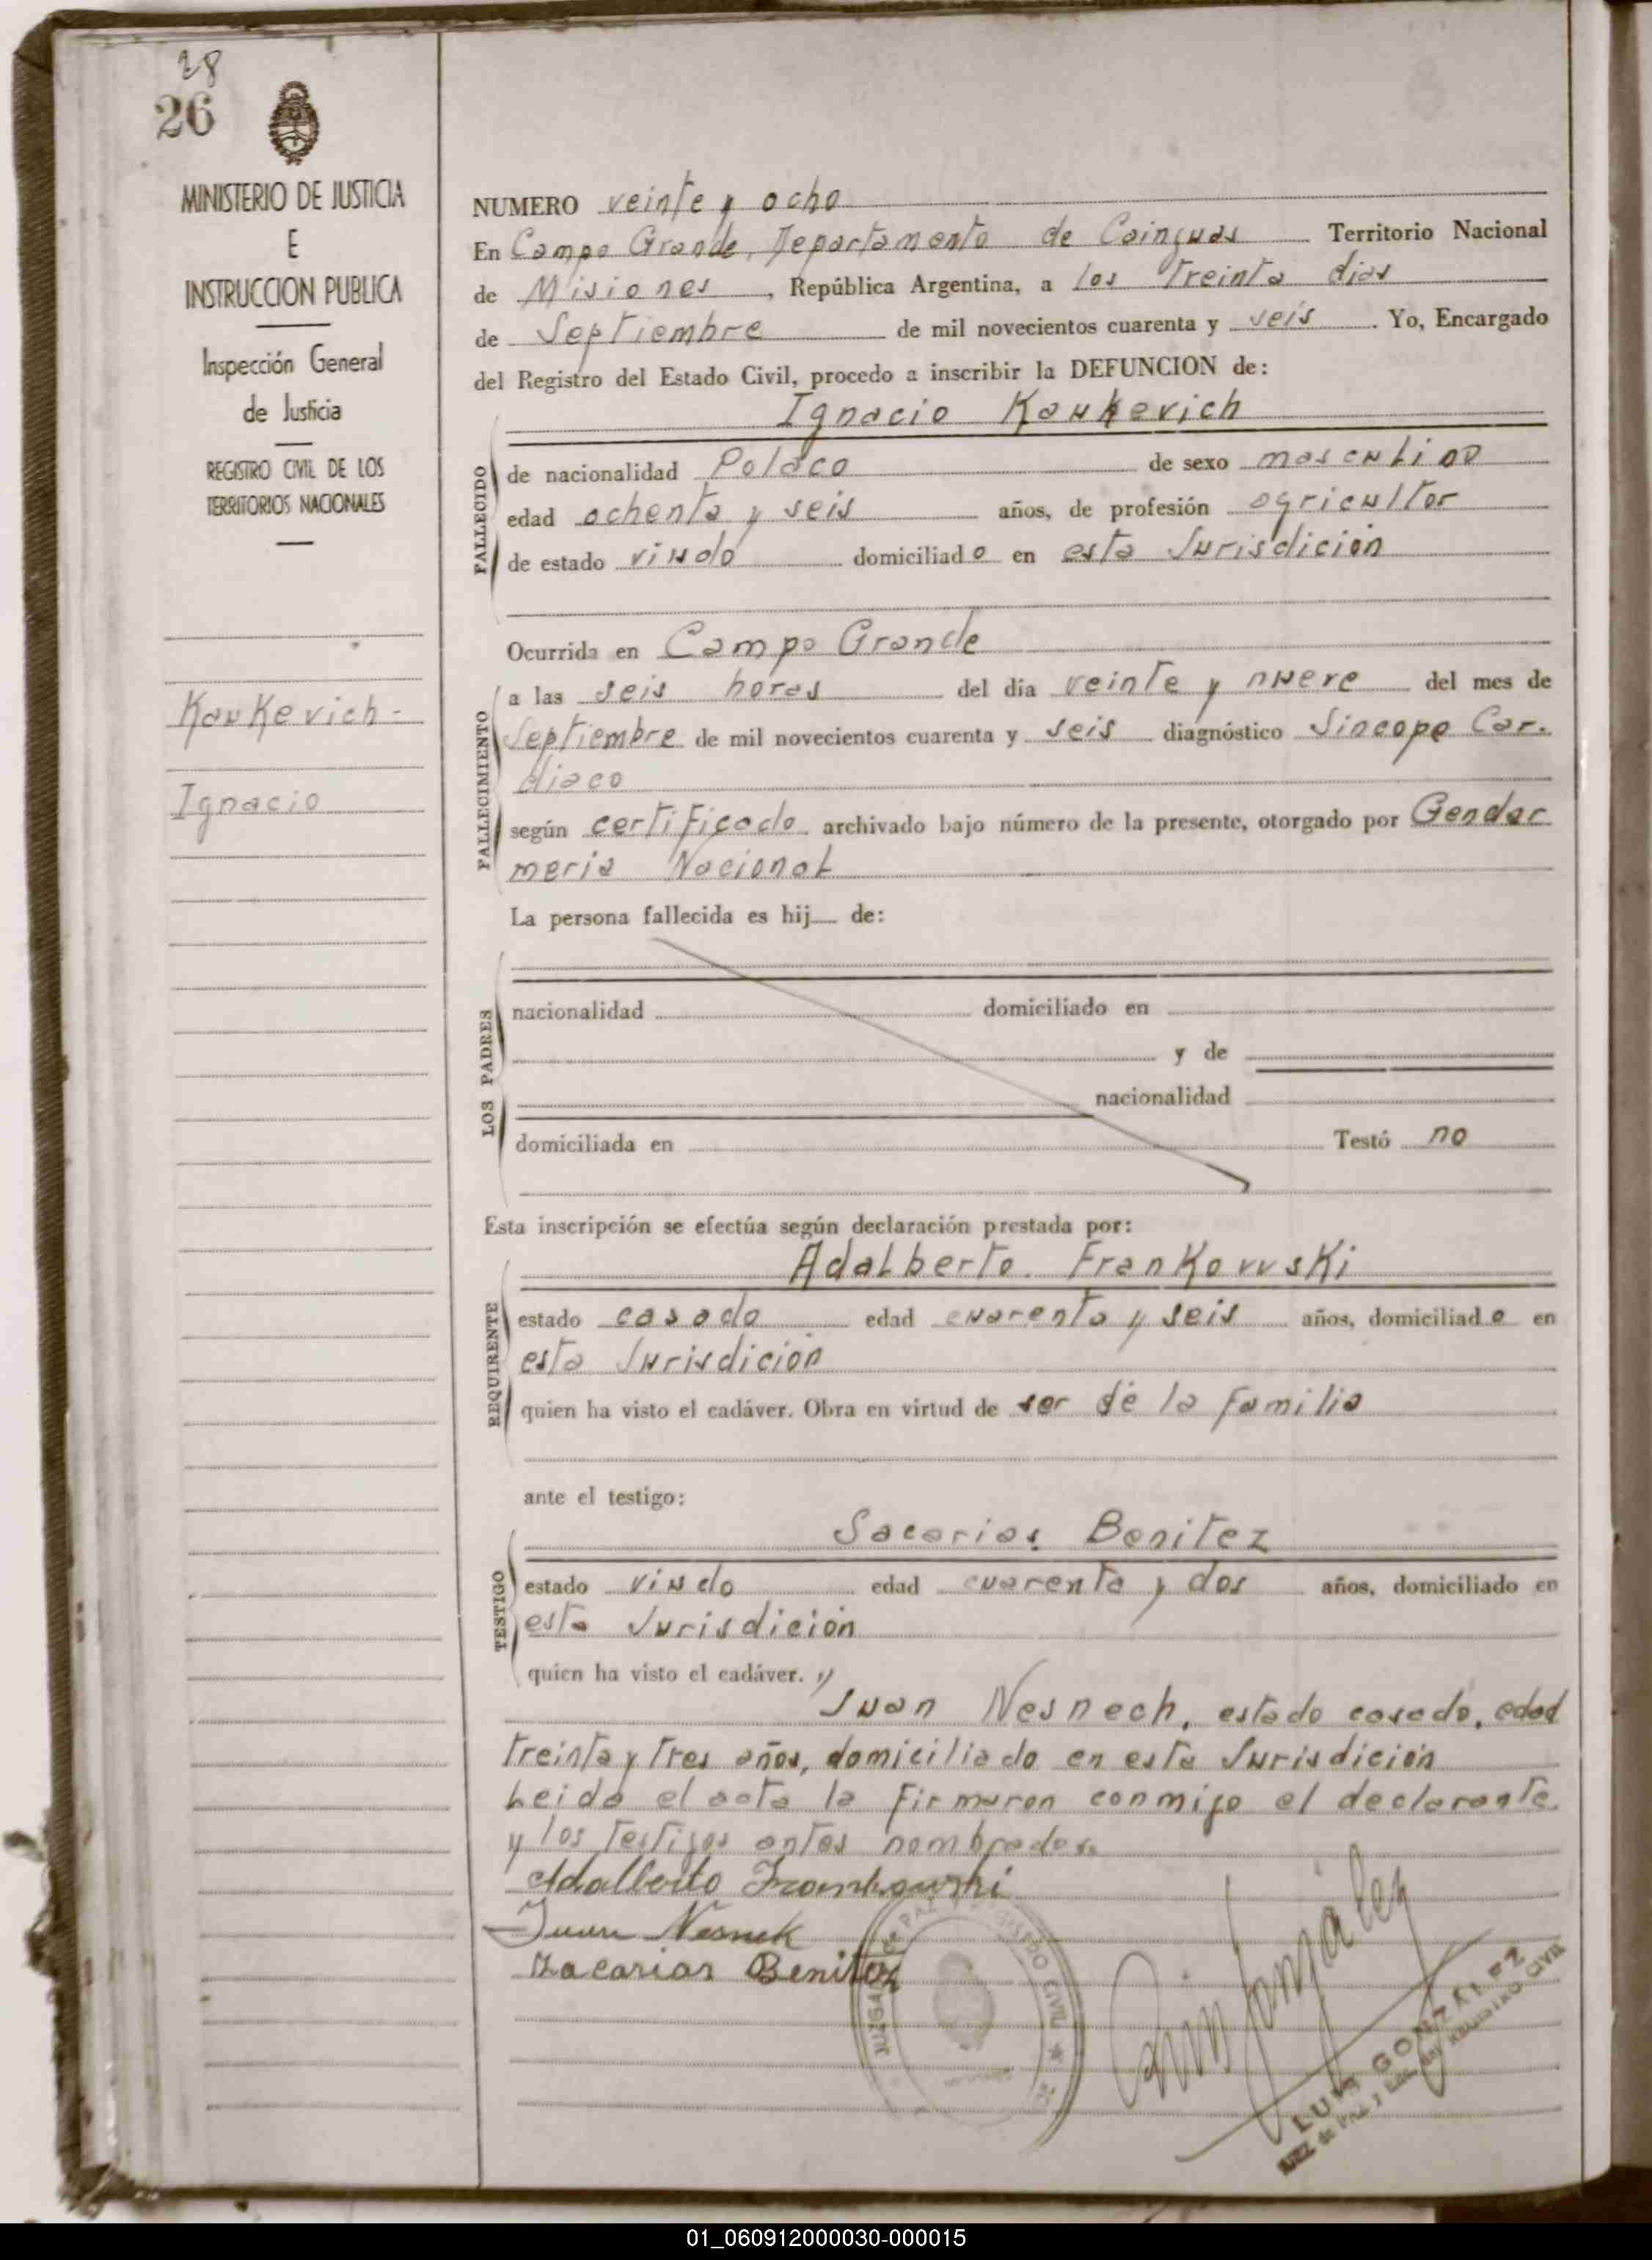 28
26
MINISTERIO DE JUSTICIA
E
INSTRUCCION PUBLICA
Inspección General
de Justicia
REGISTRO CIVIL DE LOS
TERRITORIOS NACIONALES
Kaukevich -
Ignacio
NUMERO veinte y ocho
En Campo Grande, Departamento de Cainguas Territorio Nacional
de Misiones, República Argentina, a los treinta dias
de Septiembre de mil novecientos cuarenta y seis. Yo, Encargado
del Registro del Estado Civil, procedo a inscribir la DEFUNCION de:
Ignacio Kaukevich
FALLECIDO
de nacionalidad Polaco de sexo masculino
edad ochenta y seis años, de profesión agricultor
de estado viudo domiciliado en esta Jurisdición
Ocurrida en Campo Grande
FALLECIMIENTO
a las seis horas del día veinte y nueve del mes de
Septiembre de mil novecientos cuarenta y seis diagnóstico Sincope Car-
diaco
según certificado archivado bajo número de la presente, otorgado por Gendar
meria Nacional
La persona fallecida es hij de:
LOS PADRES
nacionalidad domiciliado en
y de
nacionalidad
domiciliada en Testó no
Esta inscripción se efectúa según declaración prestada por:
Adalberto Frankowski
REQUIRENTE
estado casado edad cuarenta y seis años, domiciliado en
esta Jurisdición
quien ha visto el cadáver. Obra en virtud de ser de la familia
ante el testigo:
Sacarias Benitez
TESTIGO
estado viudo edad cuarenta y dos años, domiciliado en
esta Jurisdición
quien ha visto el cadáver. y
Juan Nesnech, estado casado, edad
treinta y tres años, domiciliado en esta Jurisdición
Leida el acta la firmaron conmigo el declarante
y los testigos antes nombrados.
Adalberto Frankowski
Juan Nesnek
Zacarias Benitez
REGISTRO CIVIL
LUIS GONZALEZ
JUEZ de PAZ y Enc. del REGISTRO CIVIL
01_060912000030-000015